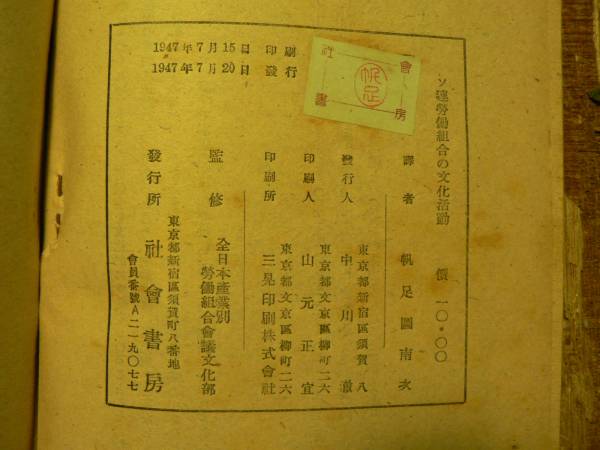 ソ連勞働組合の文化活動
價 一〇・〇〇
譯者 帆足圖南次
東京都新宿區須賀八
發行人 中川澈
東京都文京區柳町二六
印刷人 山元正宜
東京都文京區柳町二六
印刷所 三晃印刷株式會社
監修 全日本產業別
勞働組合會議文化部
東京都新宿區須賀町八番地
發行所 社會書房
會員番號A二一九〇七七
1947年7月15日 印刷
1947年7月20日 印發行
社會
書房
帆足